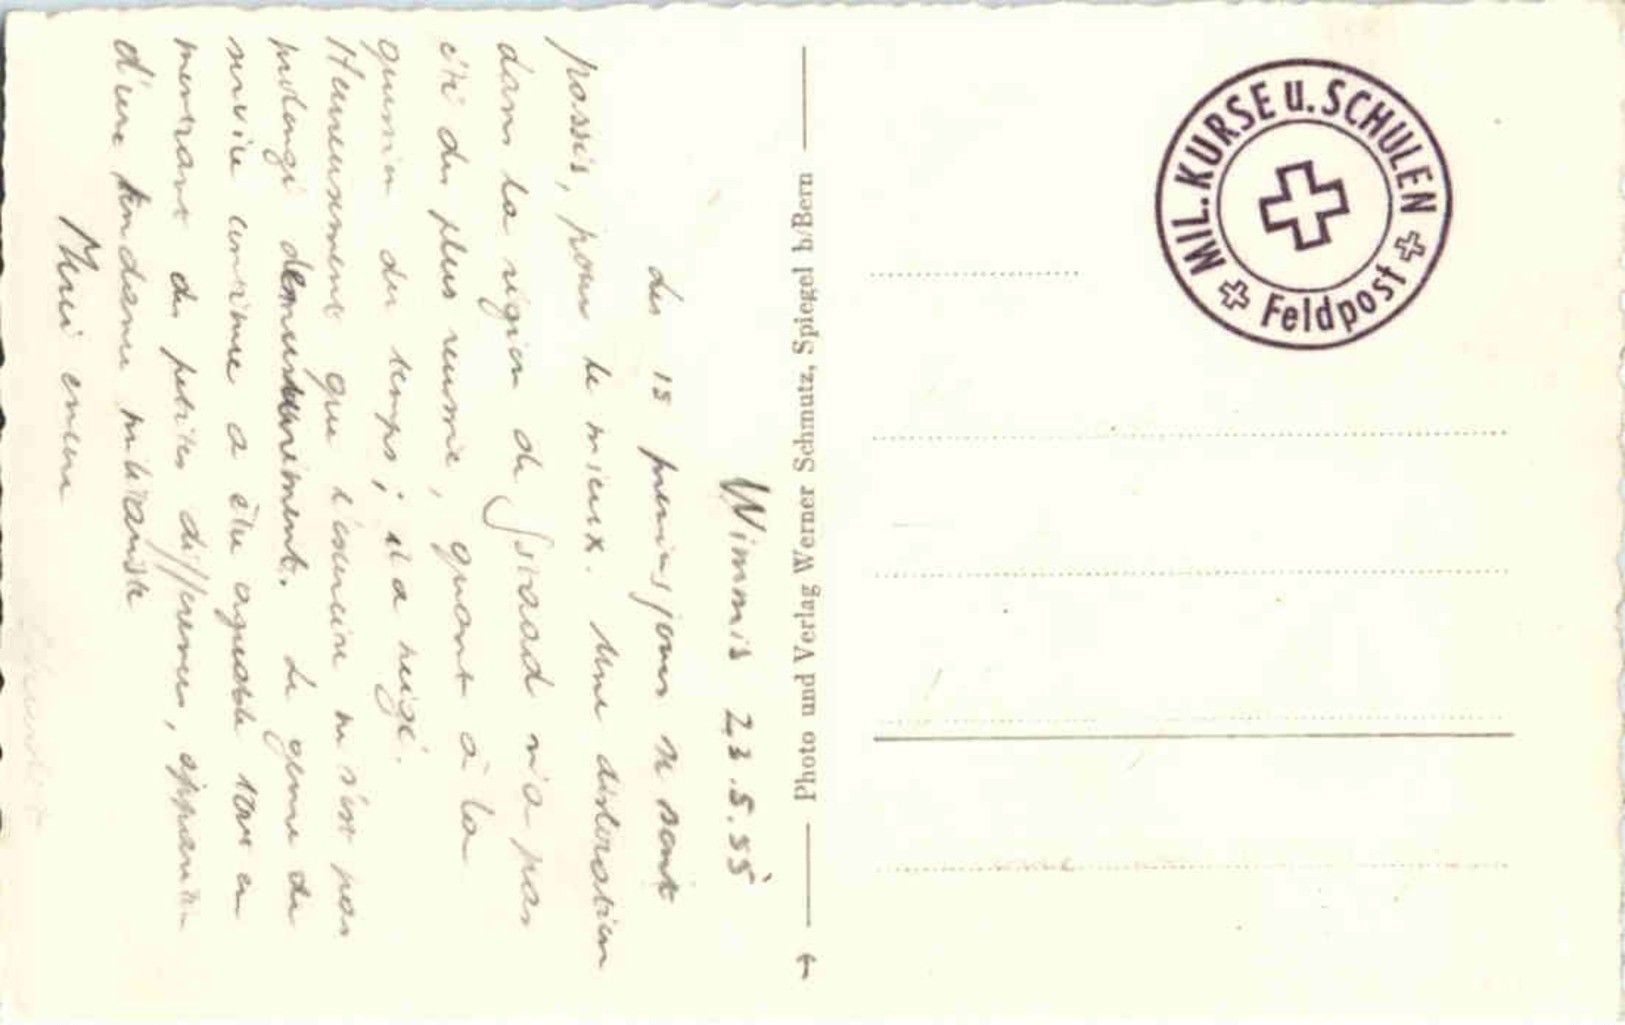 Wimmis 23.5.55
Les 15 premiers jours se sont
passés, pour le mieux. Une dislocation
dans la région de Gstaad n'a pas
été des plus réussie, quant à la
question du temps; il a neigé.
Heureusement que l'exercice ne s'est pas
prolongé Le genre de
service continue a être agréable tout en
montrant de petites différences, apparition
d'une tendance militariste
Merci encore
Photo und Verlag Werner Schmutz, Spiegel b/Bern
MIL. KURSE U. SCHULEN
Feldpost